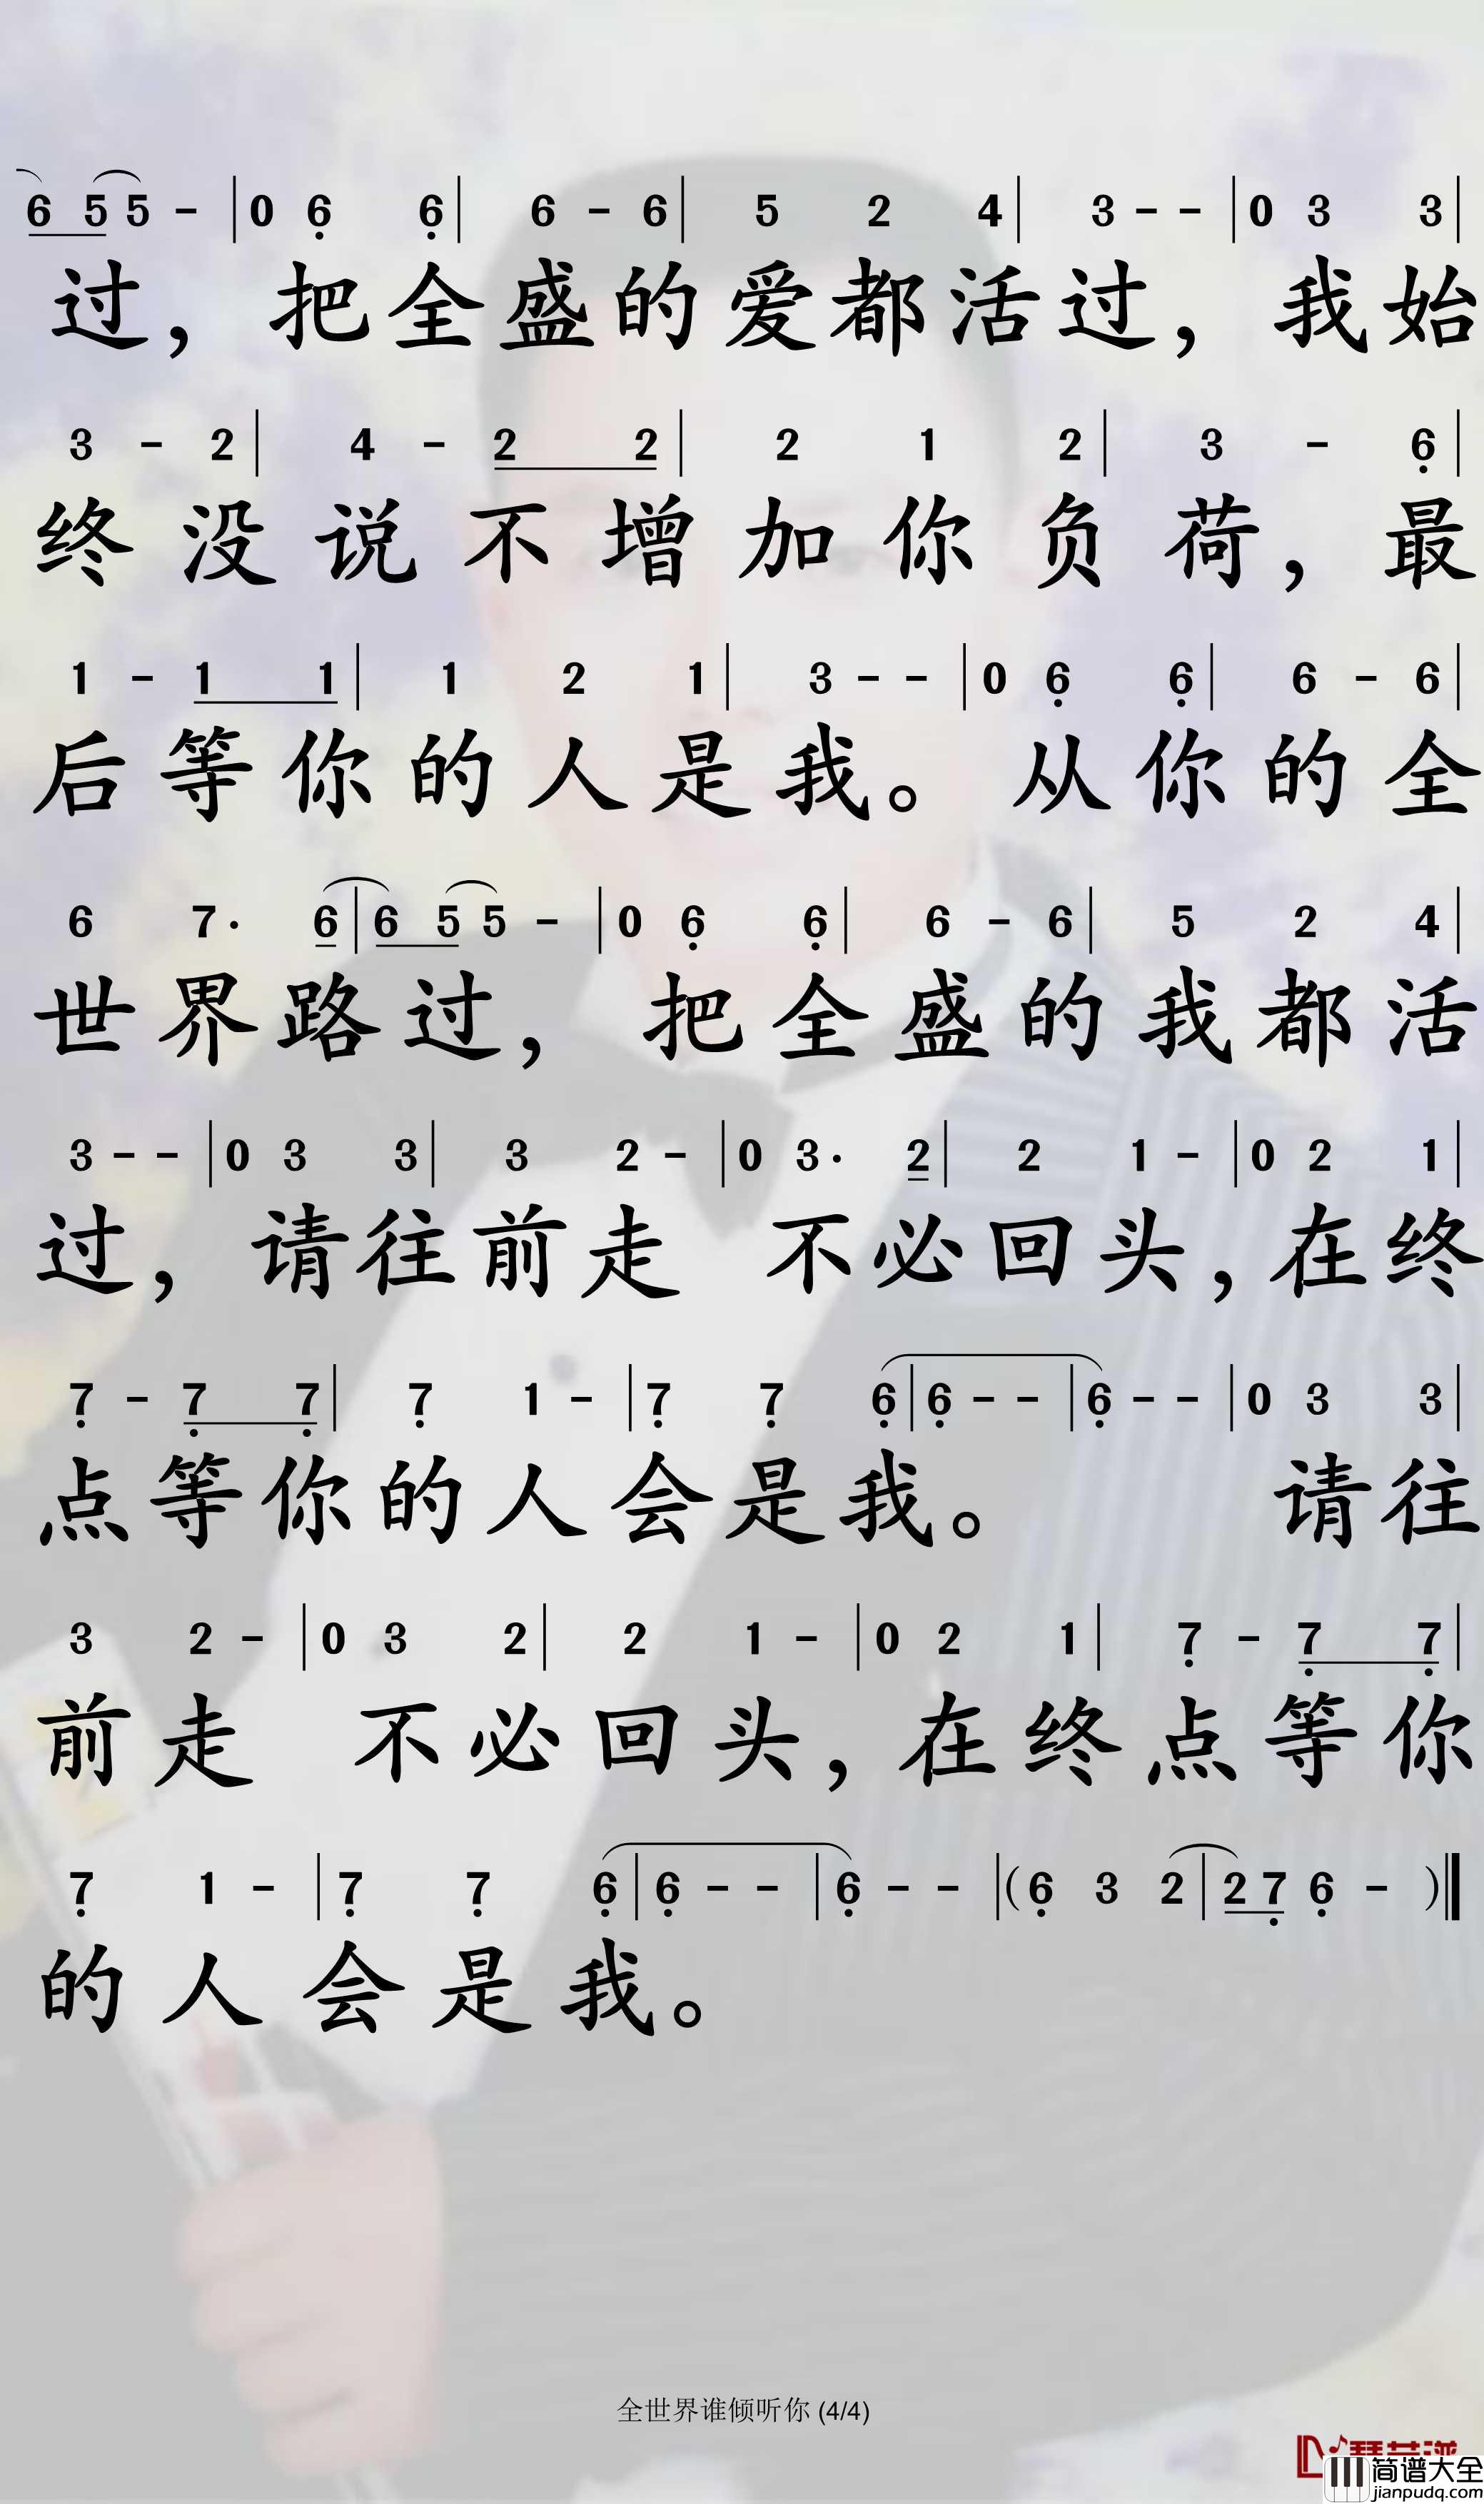 6 5 5 - | 0 6̣ 6̣ | 6 - 6 | 5 2 4 | 3 - - | 0 3 3 |
过，把全盛的爱都活过，我始
3 - 2 | 4 - 2 2 | 2 1 2 | 3 - 6̣ |
终没说不增加你负荷，最
1 - 1 1 | 1 2 1 | 3 - - | 0 6̣ 6̣ | 6 - 6 |
后等你的人是我。从你的全
6 7· 6 | 6 5 5 - | 0 6̣ 6̣ | 6 - 6 | 5 2 4 |
世界路过，把全盛的我都活
3 - - | 0 3 3 | 3 2 - | 0 3· 2 | 2 1 - | 0 2 1 |
过，请往前走 不必回头，在终
7̣ - 7̣ 7̣ | 7̣ 1 - | 7̣ 7̣ 6̣ | 6̣ - - | 6̣ - - | 0 3 3 |
点等你的人会是我。 请往
3 2 - | 0 3 2 | 2 1 - | 0 2 1 | 7̣ - 7̣ 7̣ |
前走 不必回头，在终点等你
7̣ 1 - | 7̣ 7̣ 6̣ | 6̣ - - | 6̣ - - | (6̣ 3 2 | 2 7̣ 6̣ - )‖
的人会是我。
全世界谁倾听你 (4/4)
简谱大全
jianpudq.com